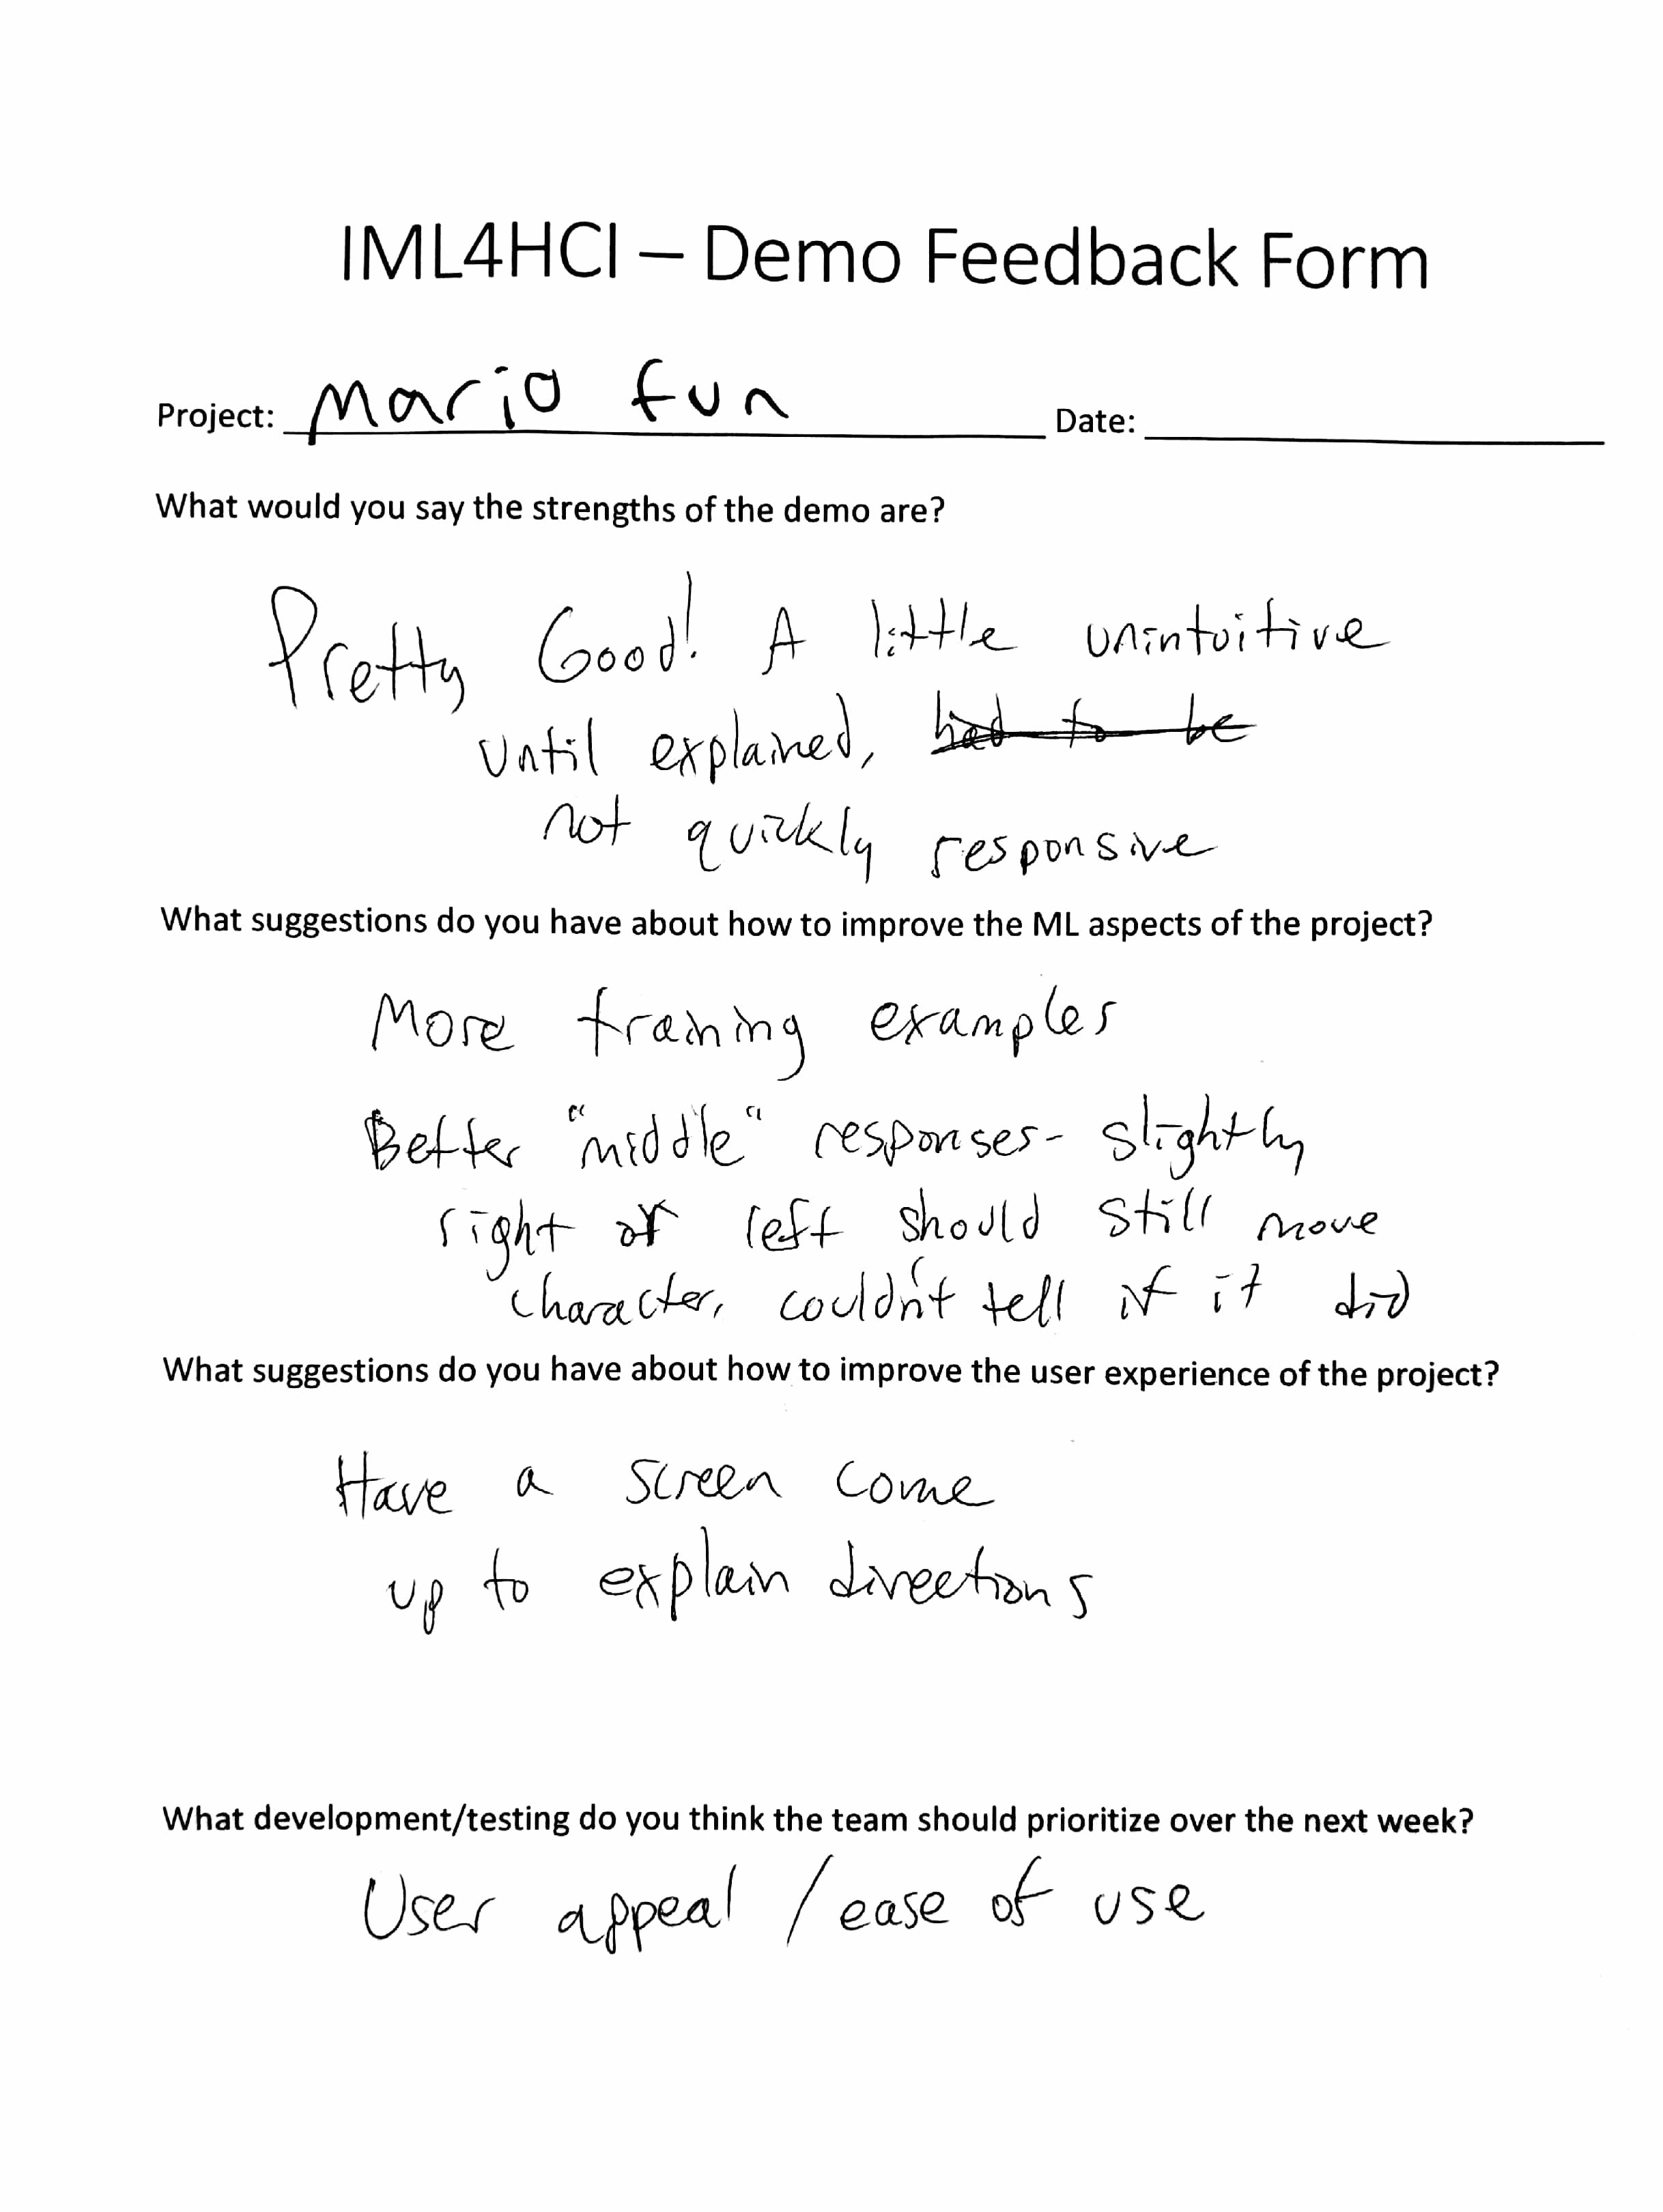 IML4HCI – Demo Feedback Form
Project: Mario fun Date:
What would you say the strengths of the demo are?
Pretty Good! A little unintuitive
until explained, had to be
not quickly responsive
What suggestions do you have about how to improve the ML aspects of the project?
More training examples
Better "middle" responses- slightly
right or left should still move
character, couldn't tell if it did
What suggestions do you have about how to improve the user experience of the project?
Have a screen come
up to explain directions
What development/testing do you think the team should prioritize over the next week?
User appeal / ease of use